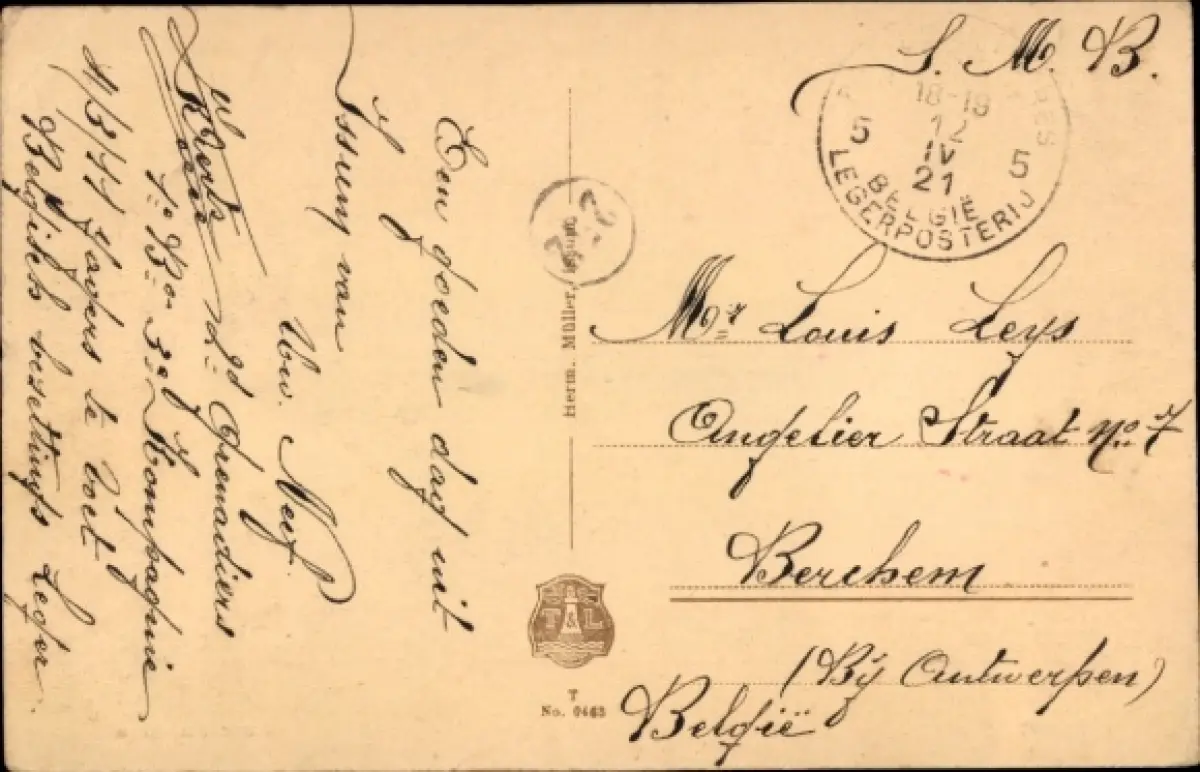 Een goeden dag uit
Issum van
Uw. Neef.
2d Grenadiers
1e Bon 3e Kompagnie
11/3/11 Jagers te voet
Belgisch bezettings Leger
Herm. Müller,
T&L
T
No. 0463
S. M. B.
18-19
12
IV
21
5 5
BELGIË
LEGERPOSTERIJ
Mr Louis Leys
Angelier Straat No 7
Berchem
(Bij Antwerpen)
België